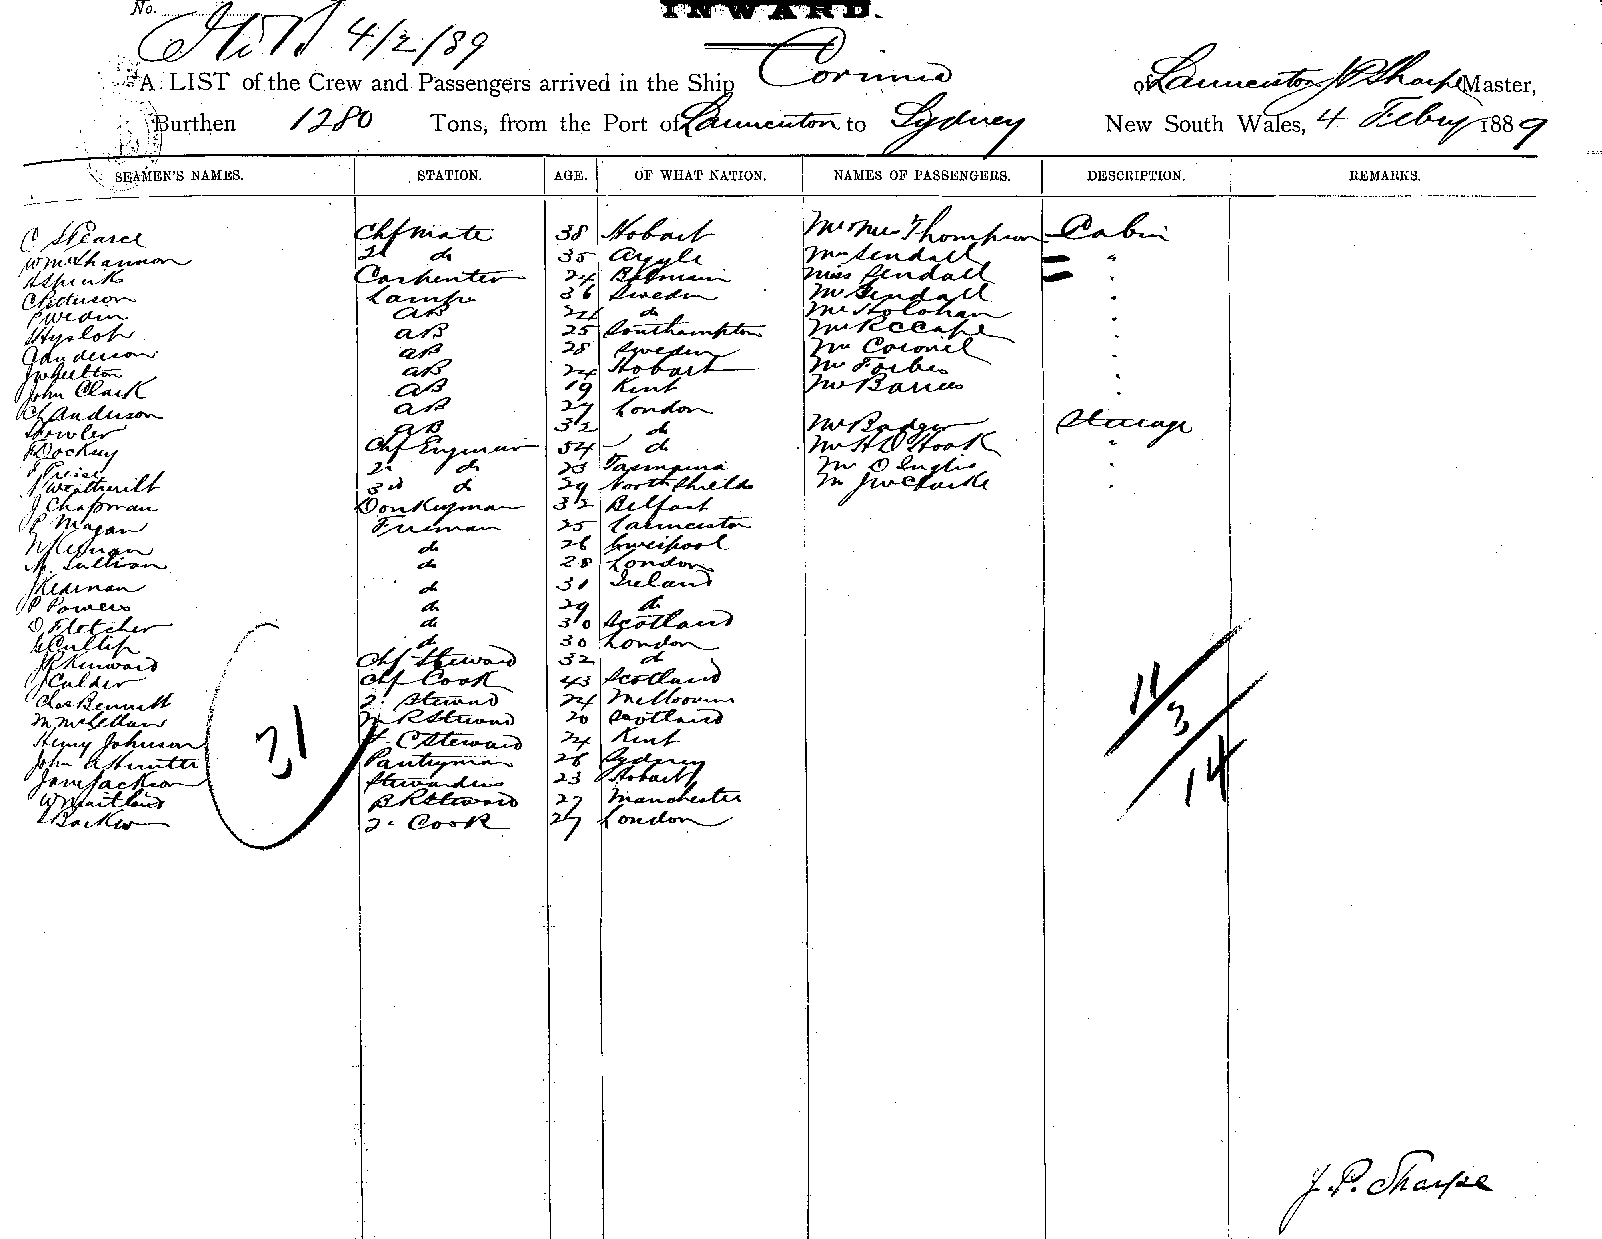 No.
INWARD.
4/2/89
A LIST of the Crew and Passengers arrived in the Ship Corinna of Launceston J P Sharpe Master,
Burthen 1280 Tons, from the Port of Launceston to Sydney New South Wales, 4 Febry 1889
SEAMEN'S NAMES. STATION. AGE. OF WHAT NATION. NAMES OF PASSENGERS. DESCRIPTION. REMARKS.
C Pearce Chf Mate 38 Hobart Mr & Mrs Thompson Cabin
W McShannon 2d do 35 Argyle Mrs Sendall "
Carpenter 24 Balmain Miss Sendall "
C Peterson Lamps 36 Sweden Mr Sendall "
AB 24 do Mr Holohan "
Hyslop AB 25 Southampton Mr McCape "
J Anderson AB 28 Sweden Mr Coronel "
AB 24 Hobart Mr Forbes "
John Clark AB 19 Kent Mr Barnes "
Ch Anderson AB 27 London
Fowler AB 32 do Mr Badger Steerage
Dockey Chf Engineer 54 do Mr H D Hook "
2d do 23 Tasmania Mr D Inglis "
Wetherilt 3rd do 29 North Shields Mr J W Clarke "
J Chapman Donkeyman 32 Belfast
P Magan Fireman 25 Launceston
do 26 Liverpool
M Sullivan do 28 London
J Keernan do 31 Ireland
P Powers do 29 do
D Fletcher do 30 Scotland
do 30 London
Chf Steward 32 do
J Calder Chf Cook 43 Scotland
Chas Bennett 2d Steward 24 Melbourne
M McLellan M R Steward 20 Scotland
Henry Johnson F C Steward 24 Kent
John A Hunter Pantryman 26 Sydney
Jane Jackson Stewardess 23 Hobart
W Maitland B R Steward 27 Manchester
Barker 2d Cook 27 London
31
11/3/14
J. P. Sharpe